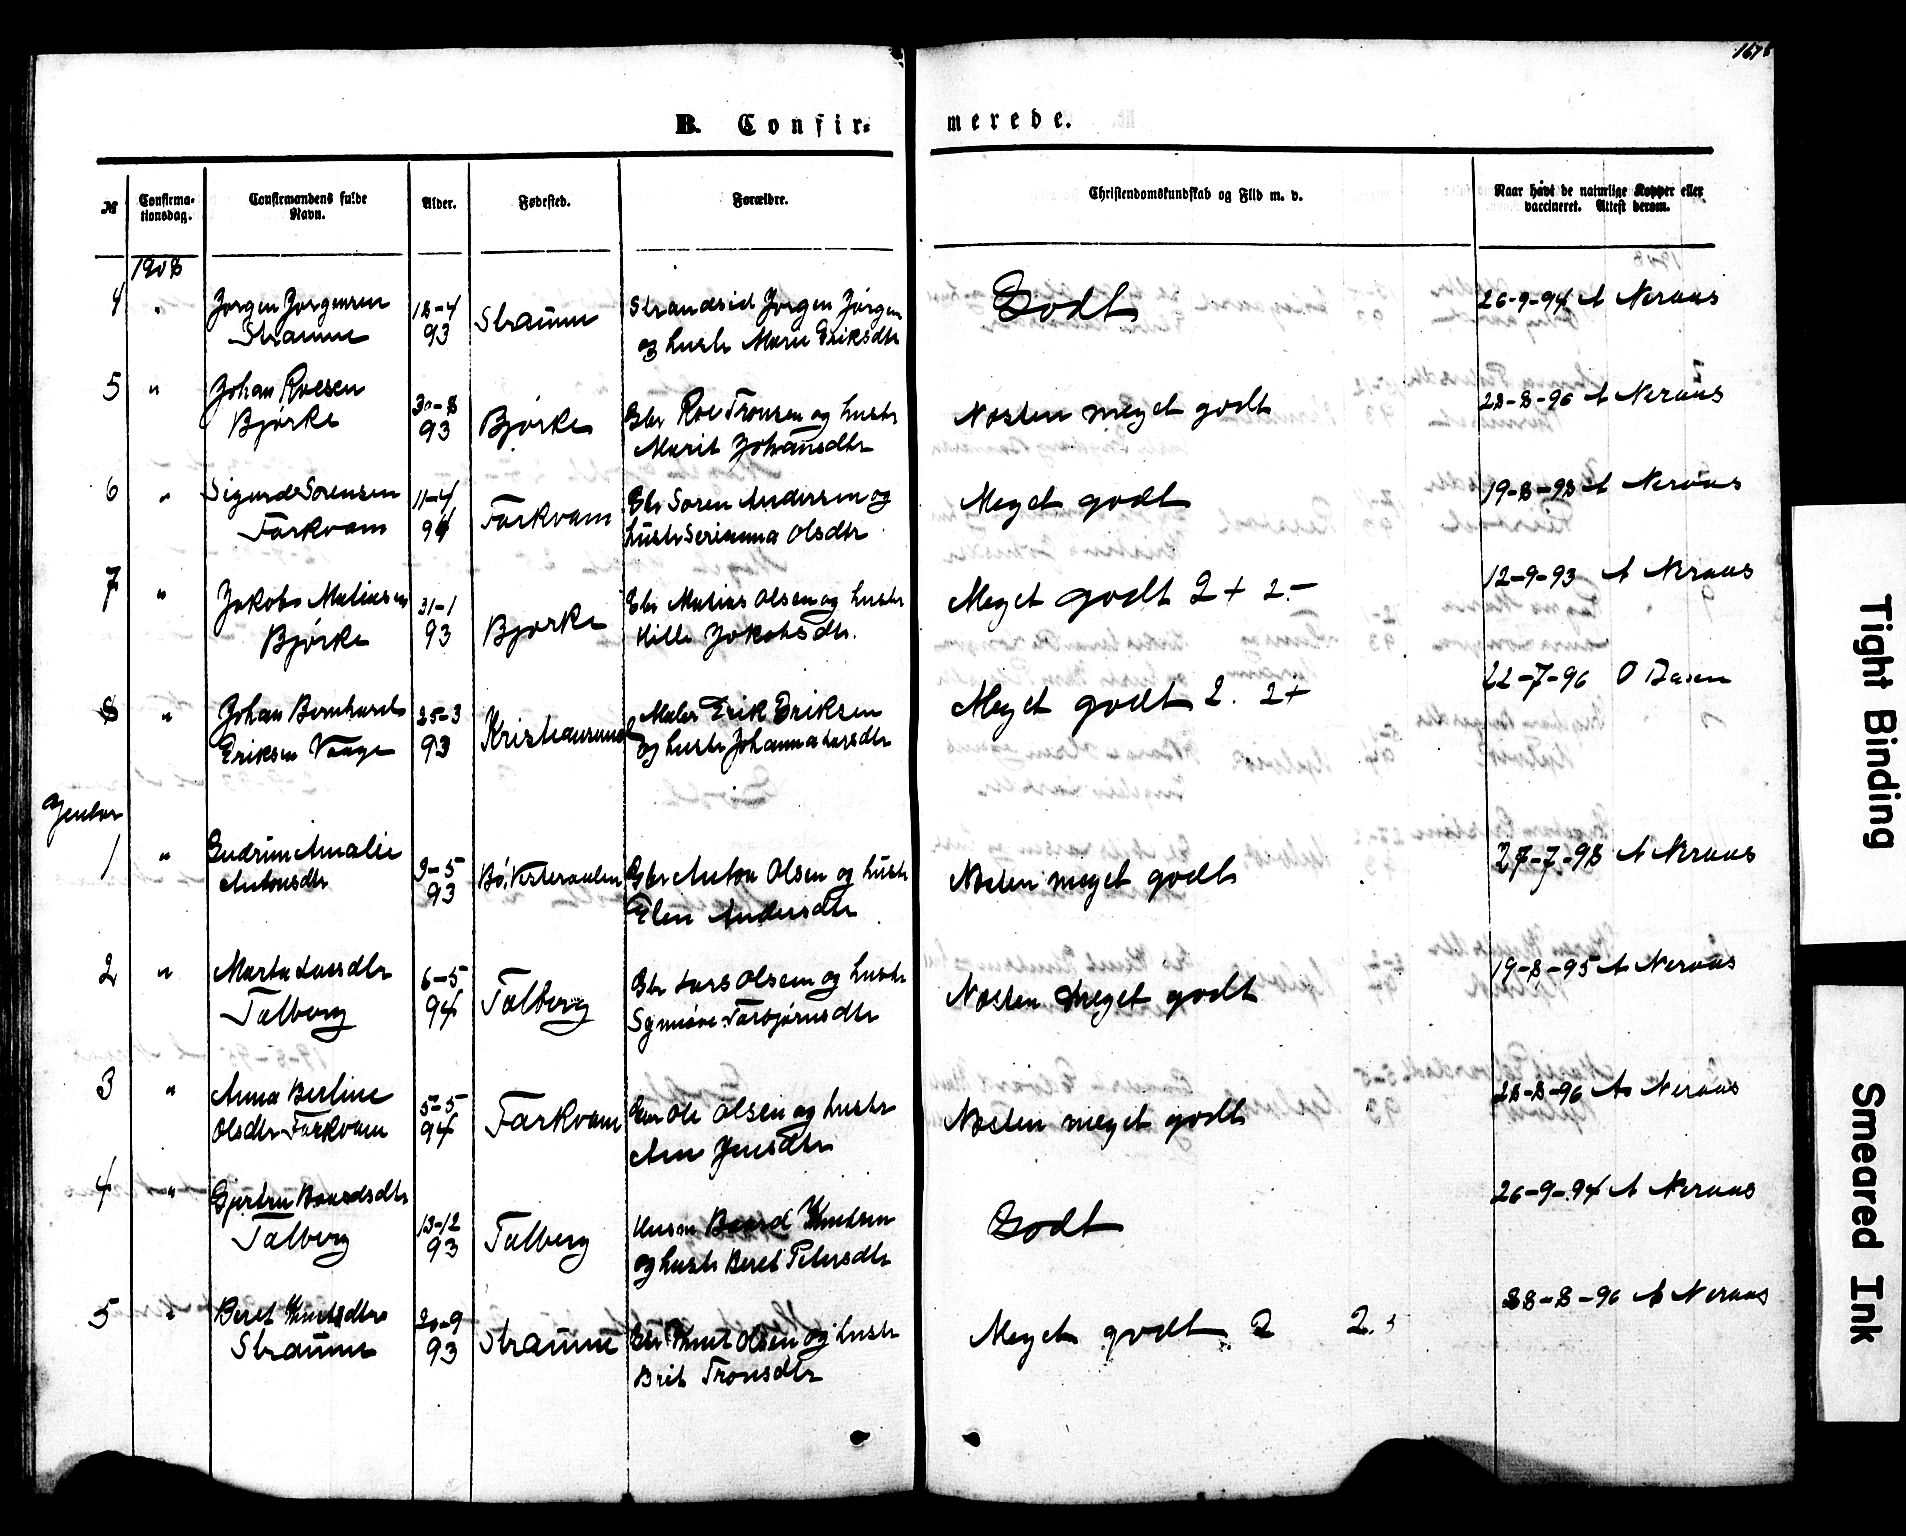 B. Confir- merede.
№ Confirma-tionsdag. Confirmandens fulde Navn. Alder. Fødested. Forældre. Christendomskundskab og Flid m. v. Naar havt de naturlige Kopper eller vaccineret. Attest derom.
1908
4 " Jørgen Jørgensen 18-4 Straume Strandsid Jørgen Jørgen Godt 26-9-94 A Neraas
Straume 93 og hustr Marie Eriksdtr
5 " Johan Roesen 30-8 Bjørke Gbr Roe Tronsen og hustr Næsten meget godt 28-8-96 A Neraas
Bjørke 93 Marit Johansdtr
6 " Sigurd Sørensen 11-4 Farkvam Gbr Søren Andersen og Meget godt 19-8-98 A Neraas
Farkvam 94 hustr Serianna Olsdtr
7 " Jakob Matiasen 31-1 Bjørke Gbr Matias Olsen og hustr Meget godt 2+ 2- 12-9-93 A Neraas
Bjørke 93 Jakobsdtr.
8 " Johan Bernhard 25-3 Kristiansund Maler Erik Eriksen Meget godt 2. 2+ 22-7-96 O
Eriksen Vaage 93 og hustr Johanna Larsdtr
Jenter
1 " Gudrun Amalie 3-5 Bø, Vesteraalen Gbr Anton Olsen og hustr Næsten meget godt 27-7-98 A Neraas
Antonsdtr 93 Elen Andersdtr
2 " Marta Larsdtr 6-5 Talberg Gbr Lars Olsen og hustr Næsten meget godt 19-8-95 A Neraas
Talberg 94 Synnøve Torbjørnsdtr
3 " Anna Berline 5-5 Farkvam Gbr Ole Olsen og hustr Næsten meget godt 28-8-96 A Neraas
Olsdtr Farkvam 94 Ane Jensdtr
4 " Gjertru Baardsdtr 13-12 Talberg Husm Baard Knudsen Godt 26-9-94 A Neraas
Talberg 93 og hustr Beret Petersdtr
5 " Beret Knutsdtr 30-9 Straume Gbr Knut Olsen og hustr Meget godt 2 2. 28-8-96 A Neraas
Straume 93 Brit Tronsdtr
Tight Binding
Smeared Ink